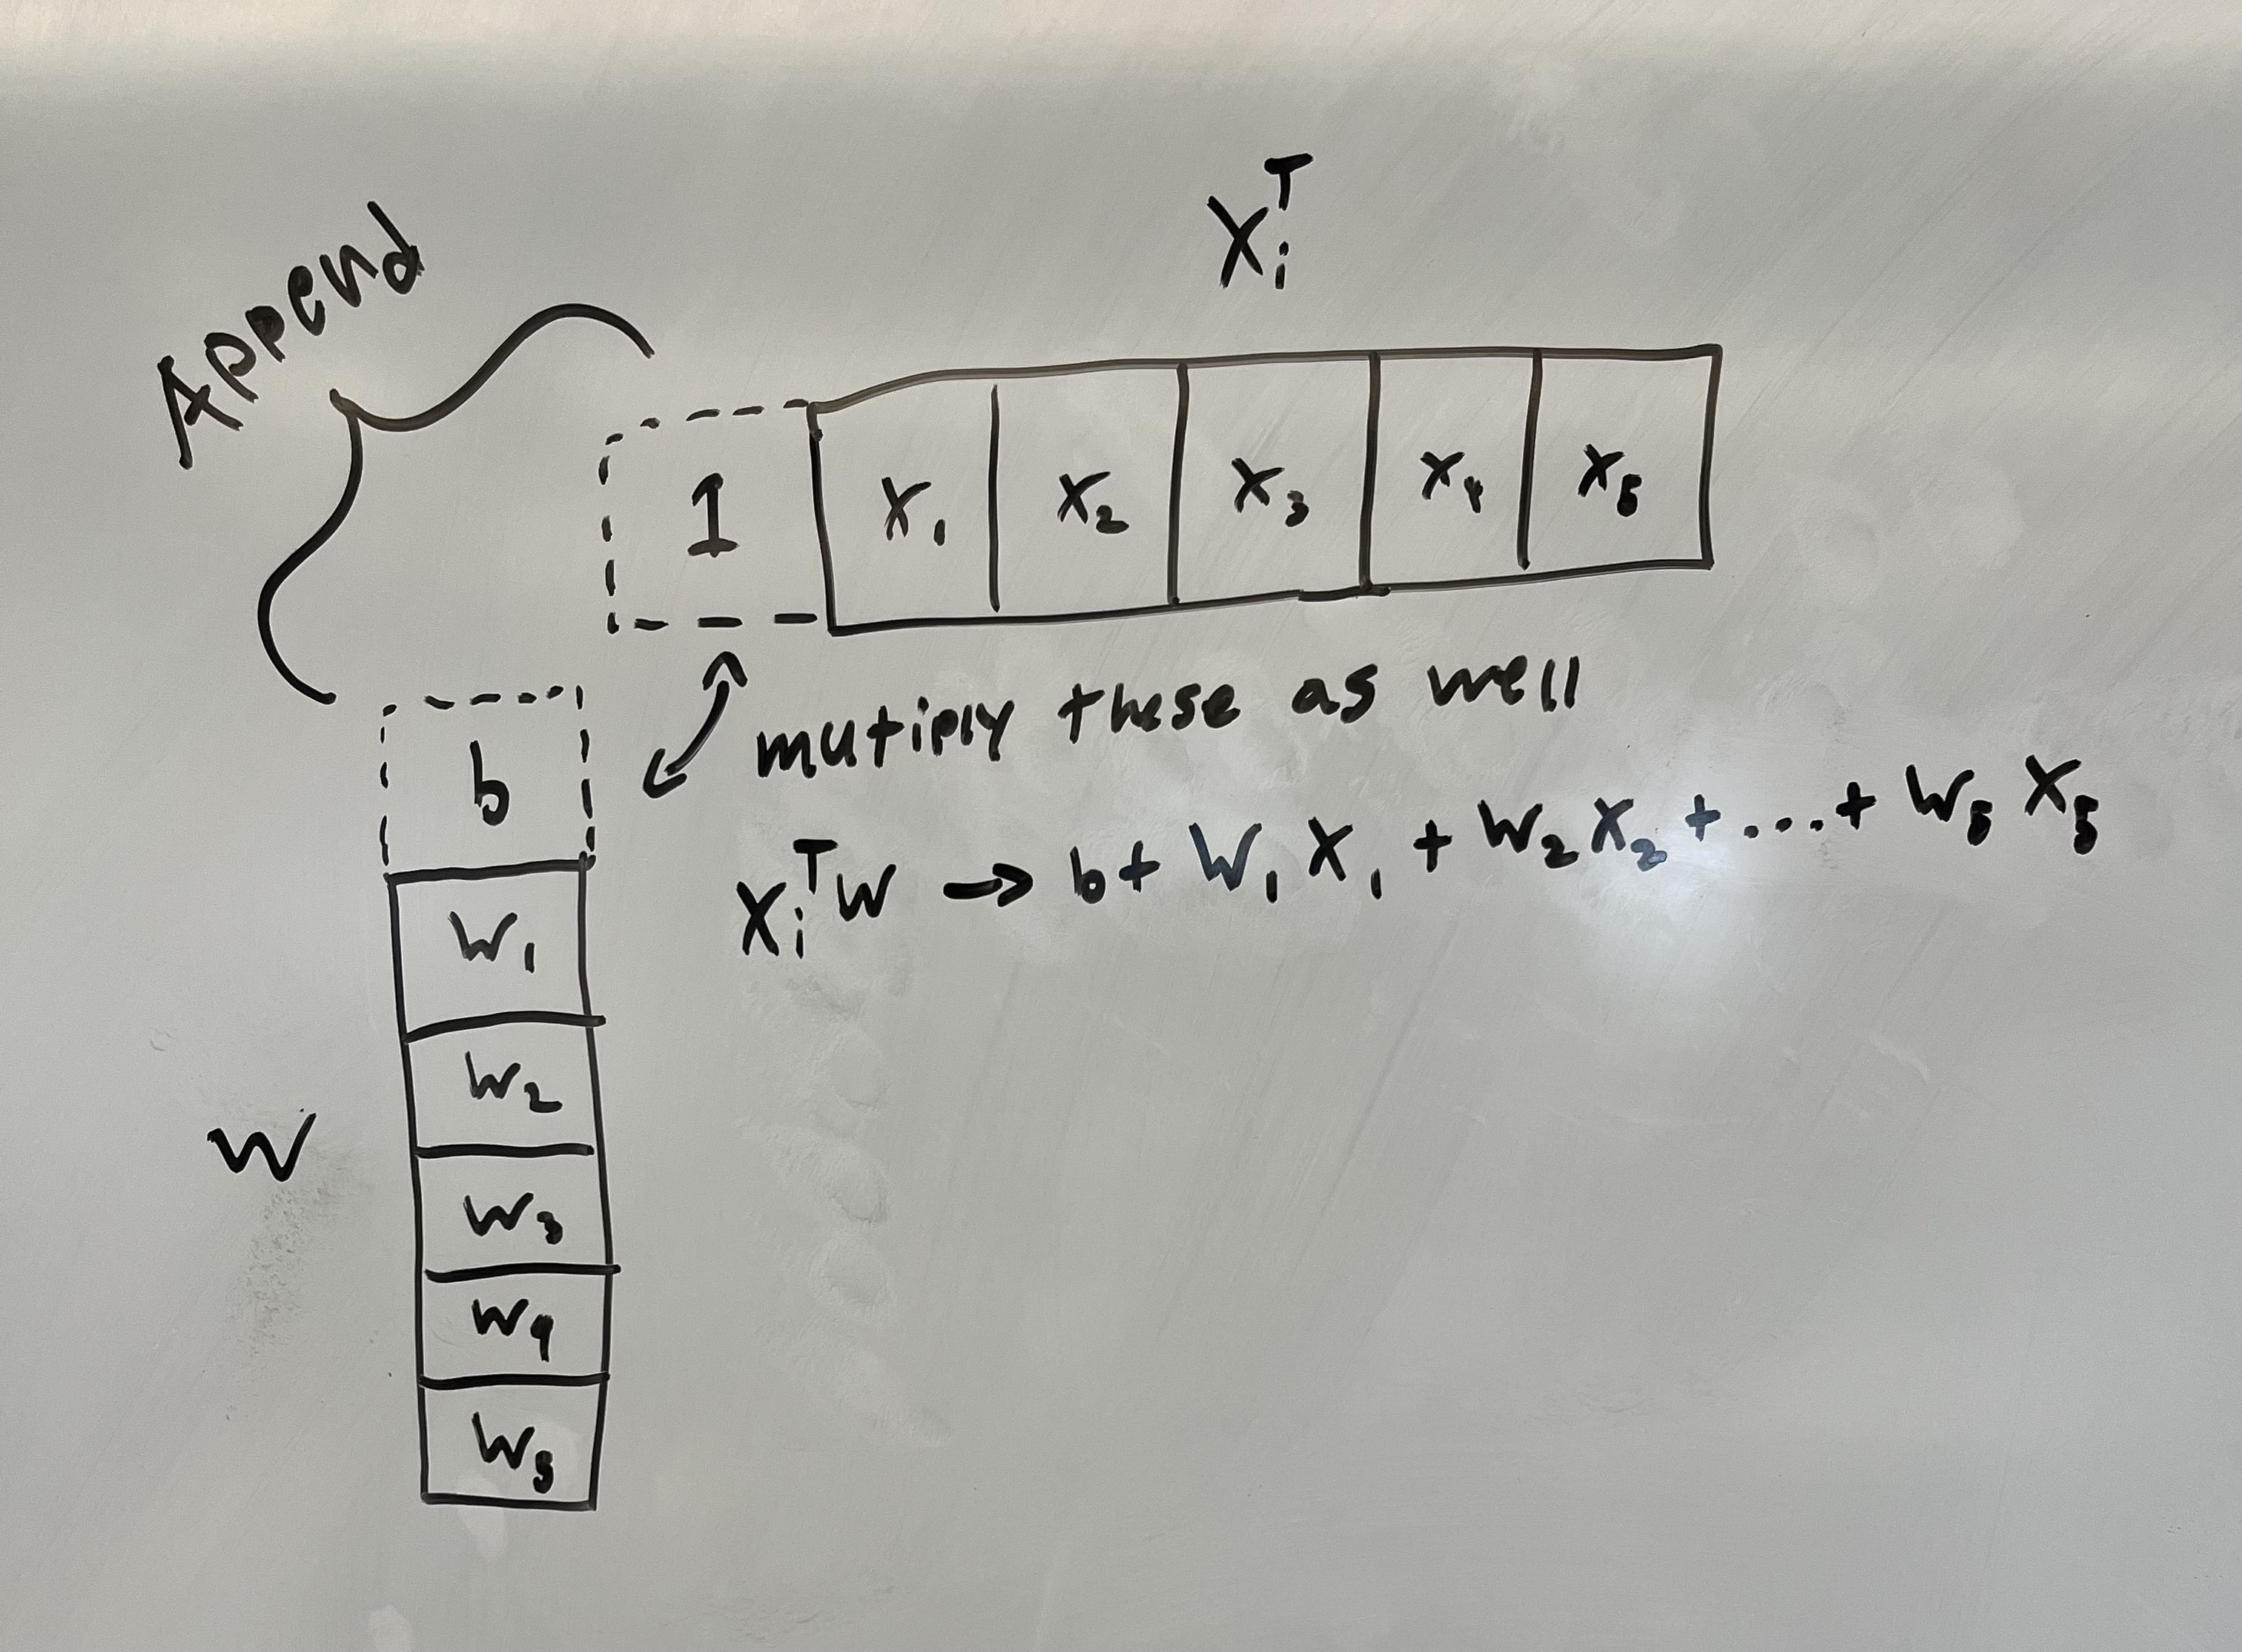 Append
Xᵢᵀ
1 X₁ X₂ X₃ X₄ X₅
mutiply these as well
b
Xᵢᵀ W → b + W₁ X₁ + W₂ X₂ + ... + W₅ X₅
W₁
W₂
W
W₃
W₄
W₅